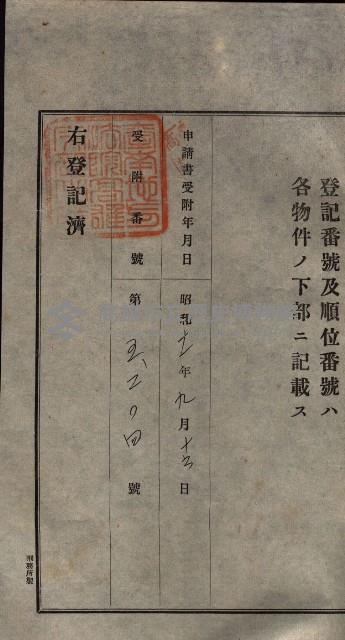 登記番號及順位番號ハ
各物件ノ下部ニ記載ス
申請書受附年月日 昭和十二年九月十六日
受附番號 第五、二〇四號
右登記濟
刑務所製